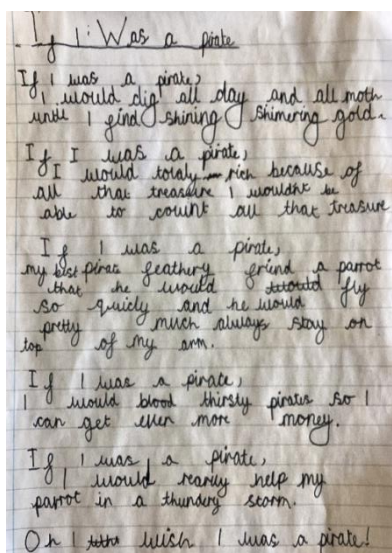 If I Was a pirate
If I was a pirate,
I would dig all day and all moth
until I find shining shimering gold.
If I was a pirate,
I would totaly rich because of
all that treasure I wouldnt be
able to count all that treasure
If I was a pirate,
my best pirat feathery friend a parrot
that he would would fly
so quicly and he would
pretty much always stay on
top of my arm.
If I was a pirate,
I would blood thirsty pirates so I
can get even more money.
If I was a pirate,
I would rearly help my
parrot in a thundery storm.
Oh I wish I was a pirate!